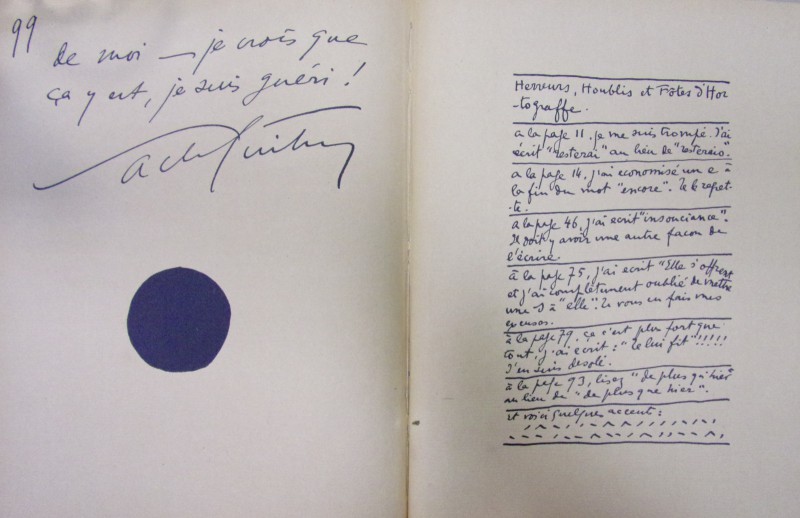 99
de moi — je crois que
ça y est, je suis guéri !
Sacha Guitry
Herreurs, Houblis et Fôtes d'Hor
-tograffe.
a la page 11. je me suis trompé. J'ai
écrit "resterai" au lieu de "resterais".
a la page 14, j'ai economisé un e à
la fin du mot "encore". Je le regret-
-te.
a la page 46, j'ai ecrit "insouciance".
Il doit y avoir une autre facon de
l'écrire.
à la page 75, j'ai ecrit "Elle s'offrent
et j'ai complètement oublié de mettre
une S à "elle". Je vous en fais mes
excuses.
à la page 79, ça c'est plus fort que
tout, j'ai ecrit : "Je lui fit" !!!!!
J'en suis desolé.
à la page 93, lisez "de plus qu'hier"
au lieu de "de plus que hier".
et voici quelques accents :